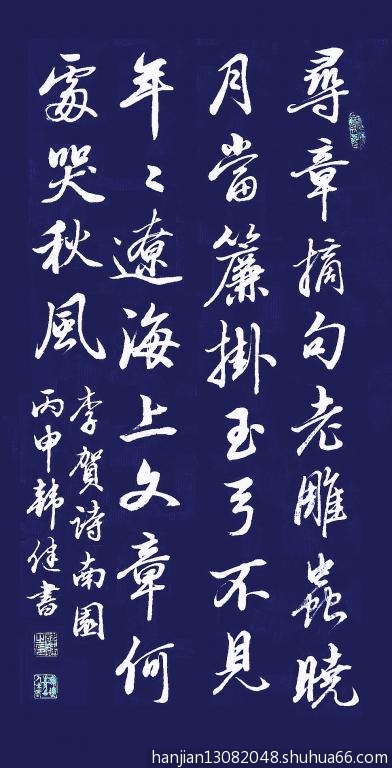 尋章摘句老雕蟲曉
月當簾掛玉弓不見
年〻遼海上文章何
處哭秋風
李賀詩南園
丙申韩健書
hanjian13082048.shuhua66.com